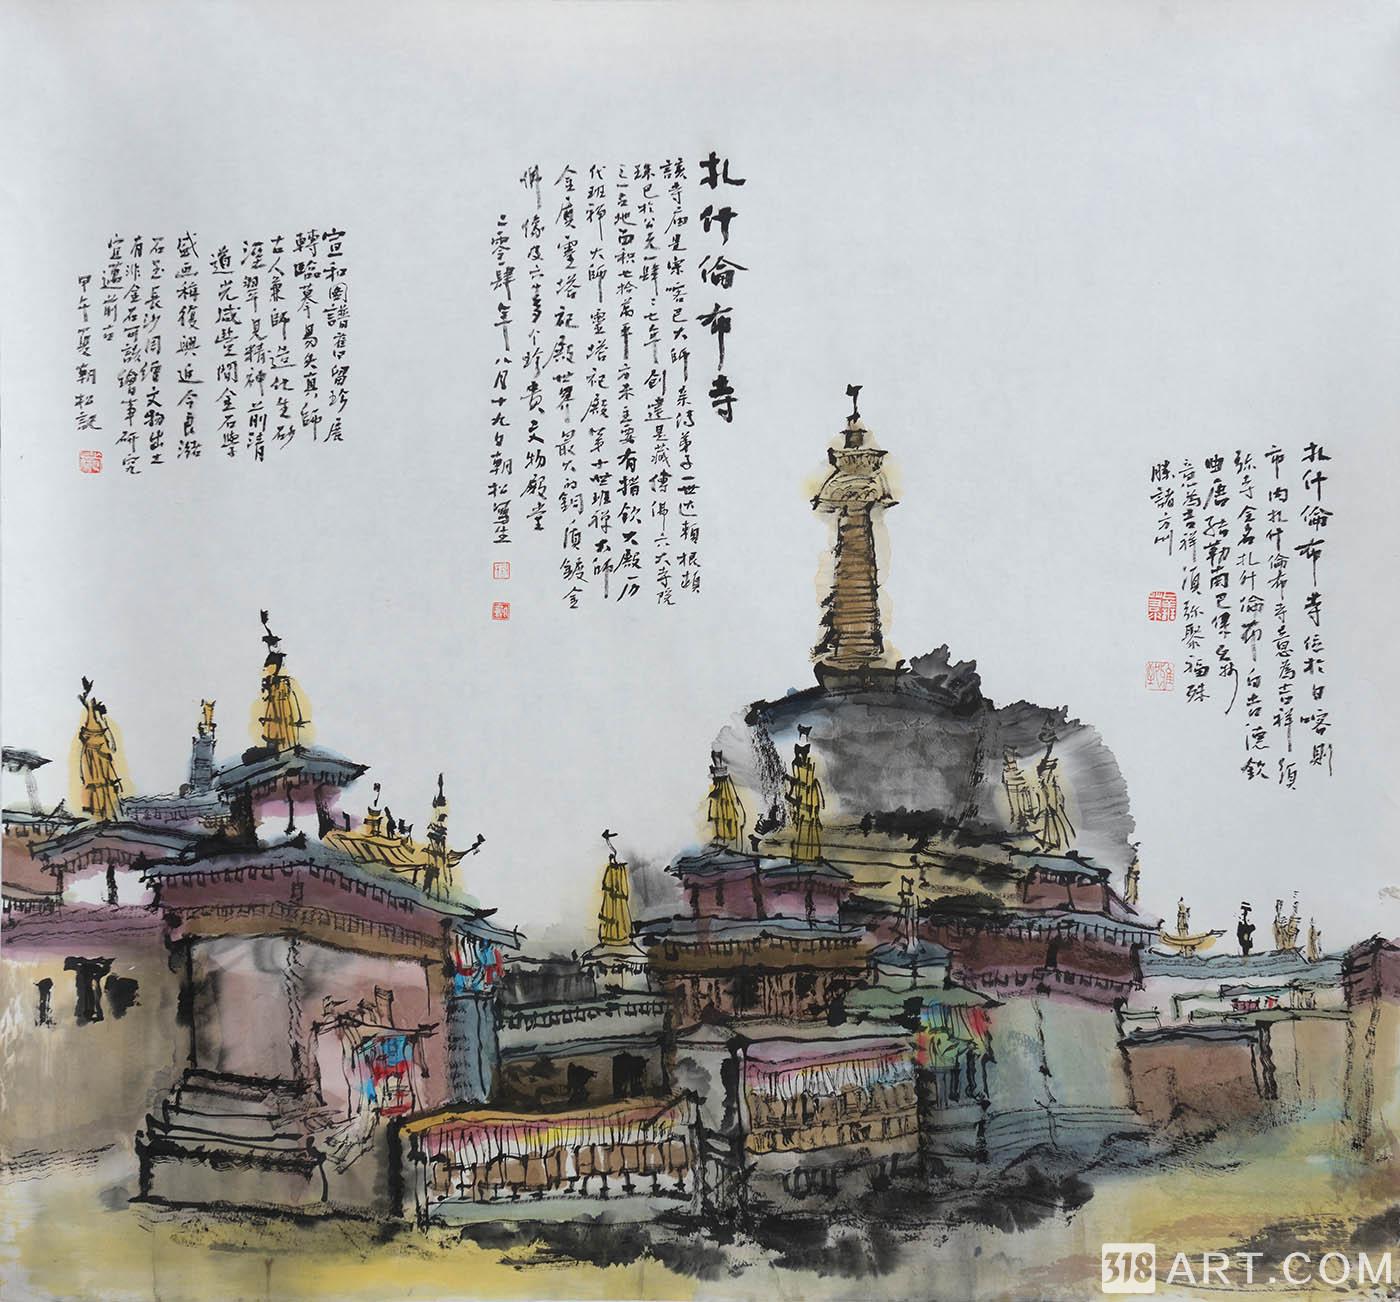 扎什倫布寺位於日喀則
市内扎什倫布寺意為吉祥須
弥寺全名扎什倫布白吉德欽
曲唐結勒南巴傑
意為吉祥須弥聚福殊
勝諸方州
扎什倫布寺
該寺庙是宗喀巴大師亲傳弟子一世达賴根敦
珠巴於公元一肆三七年創建是藏傳佛六大寺院
之一占地面积七拾萬平方米主要有措欽大殿历
代班禅大師靈塔祀殿第十世班禅大師
金質靈塔祀殿世界最大的銅质鍍金
佛像及六十多个珍贵文物殿堂
二零肆年八月十九日朝松寫生
宣和图譜舊留珍
轉臨摹易失真師
古人兼師造化生砂
深翠見精神前清
道光咸豐間金石學
盛画稱復興近今良渚
石長沙繒文物出土
有非金石可該繪事研究
宜邁前古
甲午夏朝松記
318ART.COM